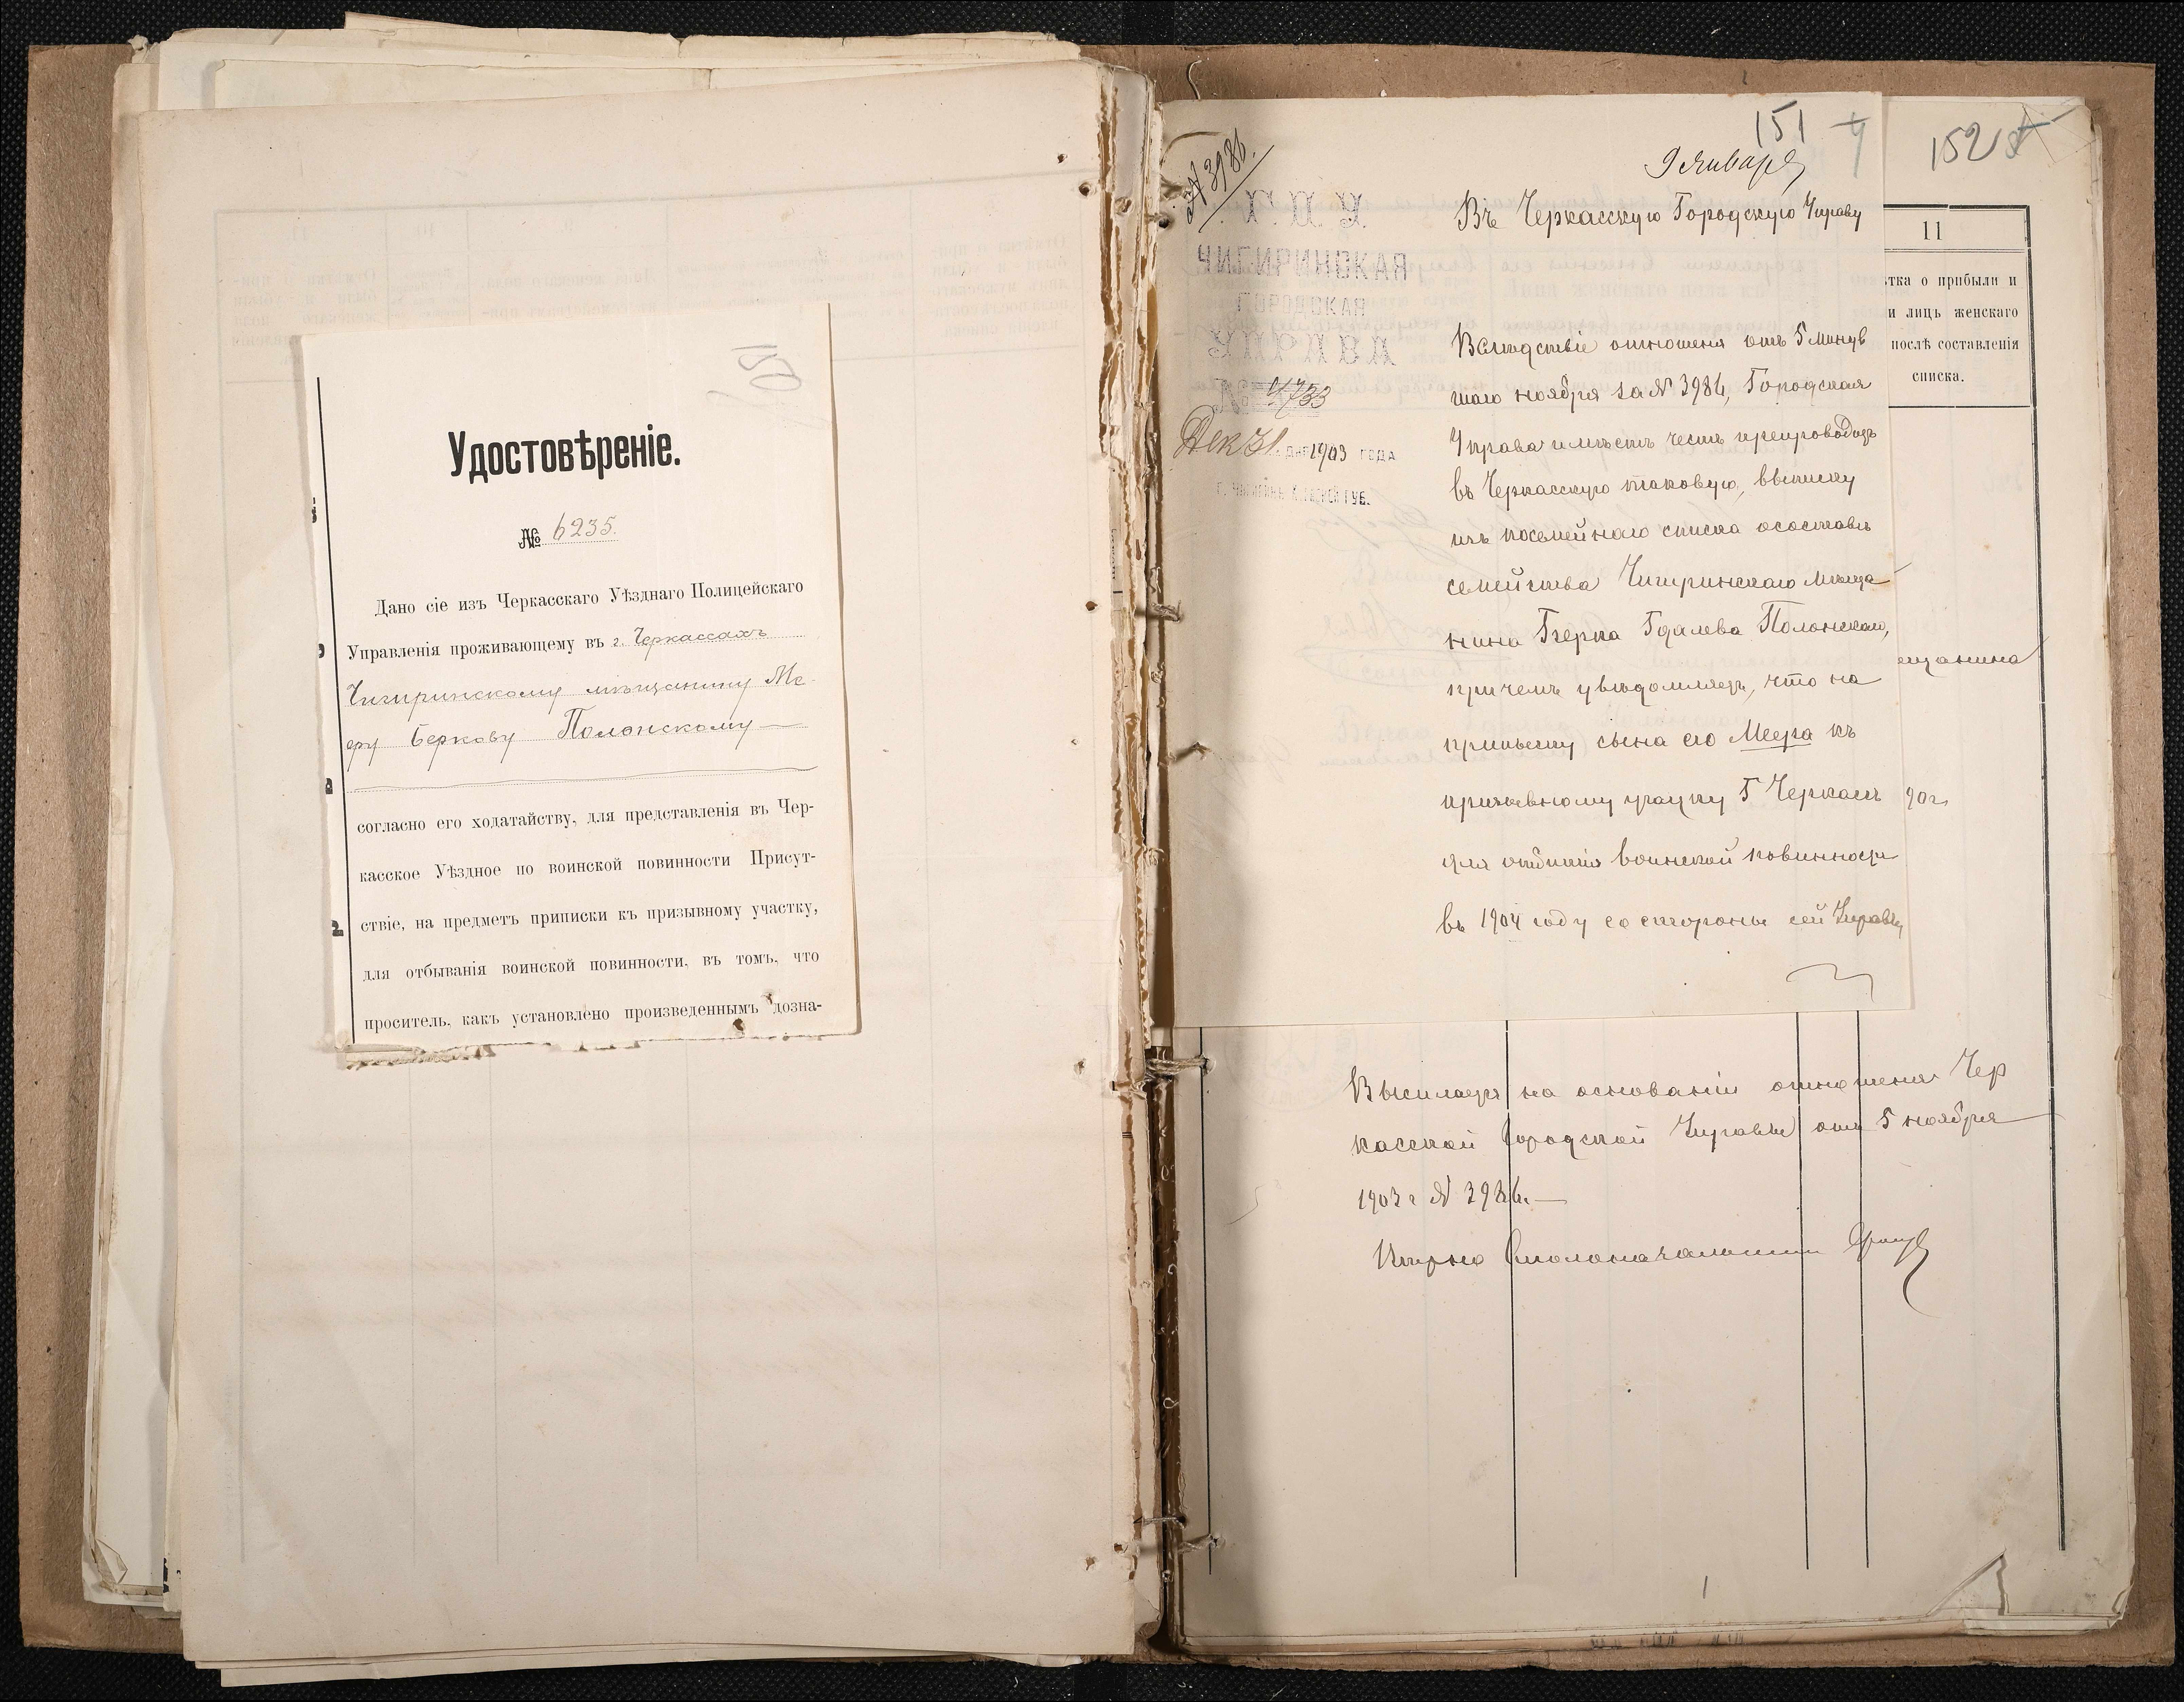 Удостовѣреніе.
№ 6235.
Дано сіе изъ Черкасскаго Уѣзднаго Полицейскаго
Управленія проживающему въ г. Черкассахъ
Чигиринскому мѣщанину Ме-
еру Беркову Полонскому —
согласно его ходатайству, для представленія въ Чер-
касское Уѣздное по воинской повинности Присут-
ствіе, на предметъ приписки къ призывному участку,
для отбыванія воинской повинности, въ томъ, что
проситель, какъ установлено произведеннымъ дозна-
151
9 Января
№ 3986.
ЧИГИРИНСКАЯ
ГОРОДСКАЯ
УПРАВА
№ 4733
Дек 31 дня 1903 года
Въ Черкасскую Городскую Управу
Вслѣдствіе отношенія отъ 5 минув
шаго ноября за № 3986, Городская
Управа имѣетъ честь препроводить
въ Черкасскую таковую, выписку
изъ посемейнаго списка о составѣ
семейства Чигиринскаго мѣща-
нина Берка Гдалева Полонскаго,
причемъ увѣдомляетъ, что на
приписку сына его Меера къ
призывному участку Г Черкасъ
для отбытія воинской повинности
въ 1904 году со стороны сей Управы
152
11
тка о прибыли и
и лицъ женскаго
послѣ составленія
списка.
ещанина
Высылается на основаніи отношенія Чер
касской Городской Управы отъ 5 ноября
1903 г № 3986. —
Вѣрно Столоначальникъ